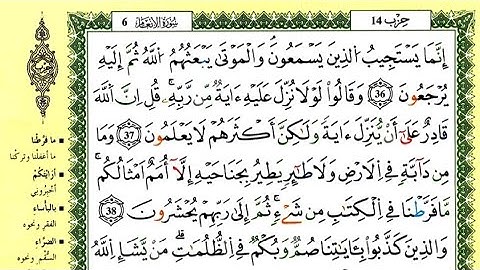 حزب 14
سورة الأنعام 6
إِنَّمَا يَسْتَجِيبُ الذِينَ يَسْمَعُونَ وَالْمَوْتَىٰ يَبْعَثُهُمُ اللَّهُ ثُمَّ إِلَيْهِ
يُرْجَعُونَ 36 وَقَالُوا لَوْلَا نُزِّلَ عَلَيْهِ ءَايَةٌ مِّن رَّبِّهِ قُلِ اِنَّ اللَّهَ
قَادِرٌ عَلَىٰ أَنْ يُنَزِّلَ ءَايَةً وَلَٰكِنَّ أَكْثَرَهُمْ لَا يَعْلَمُونَ 37 وَمَا
مِن دَآبَّةٍ فِي اِلَارْضِ وَلَا طَٰٓئِرٍ يَطِيرُ بِجَنَاحَيْهِ إِلَّآ أُمَمٌ اَمْثَالُكُم
مَّا فَرَّطْنَا فِي اِلْكِتَٰبِ مِن شَيْءٍ ثُمَّ إِلَىٰ رَبِّهِمْ يُحْشَرُونَ 38
وَالذِينَ كَذَّبُوا بِـَٔايَٰتِنَا صُمٌّ وَبُكْمٌ فِي اِلظُّلُمَٰتِ مَنْ يَّشَإِ اِللَّهُ
حزب
ما فرّطنا
ما أغفلنا وتركنا
أرايتكم
أخبروني
بالبأساء
الفقر ونحوه
الضرّاء
السّقم ونحوه